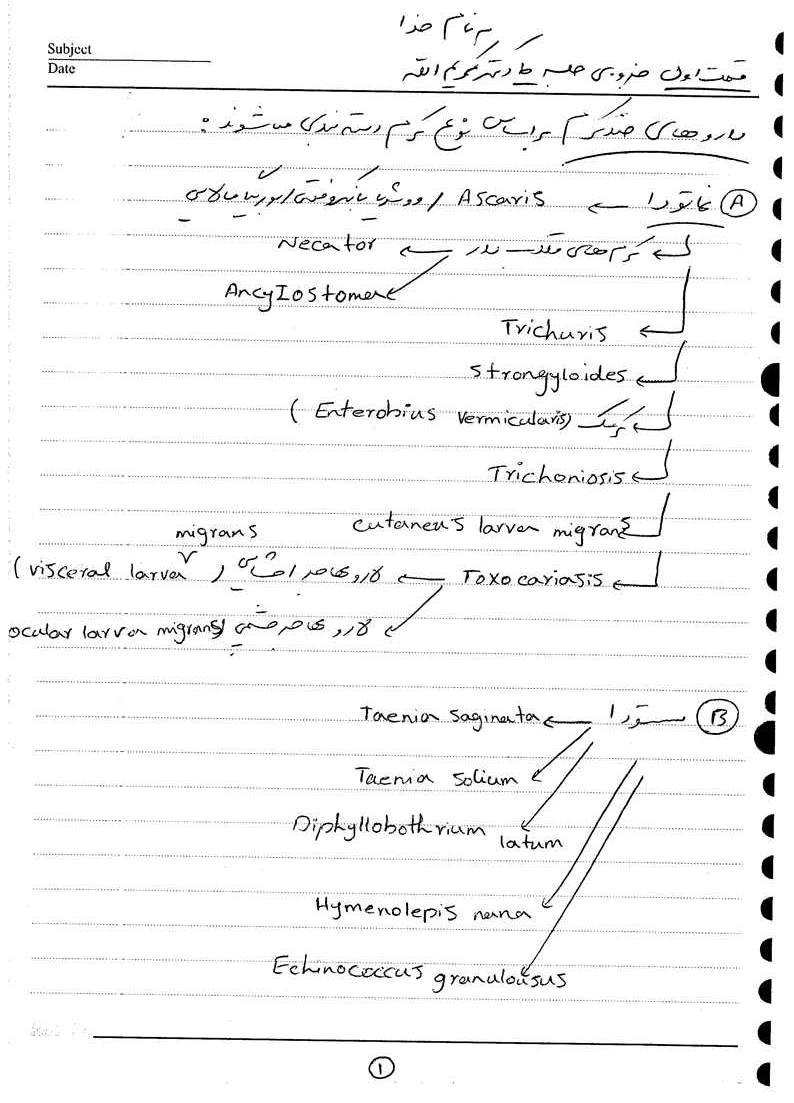 به نام خدا
Subject
Date
قسمت اول جزوه‌ی جلسه دکتر کریم الله
داروهای ضد کرم براساس نوع کرم دسته بندی می شوند:
A نماتودا ← Ascaris /
کرم های قلاب دار ← Necator
Ancylostoma
Trichuris
Strongyloides
کرمک (Enterobius vermicularis)
Trichoniosis
cutaneus larva migrans
Toxocariasis ← لارو مهاجر احشایی (visceral larva migrans)
لارو مهاجر چشمی (ocular larva migrans)
B سستودا ← Taenia saginata
Taenia solium
Diphyllobothrium latum
Hymenolepis nana
Echinococcus granulousus
۱